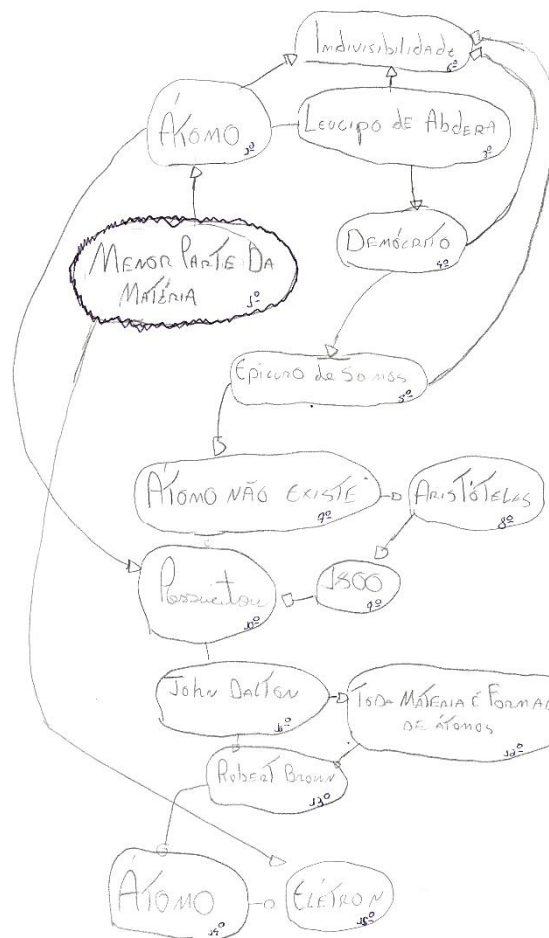 Indivisibilidade
6º
Átomo
2º
Leucipo de Abdera
3º
Demócrito
4º
Menor Parte Da
Matéria
1º
Epicuro de Somos
5º
Átomo não existe
7º
Aristóteles
8º
Ressucitou
10º
1800
9º
John Dalton
11º
Toda Materia é Forma
de átomos
12º
Robert Brown
13º
Átomo
14º
Elétron
15º